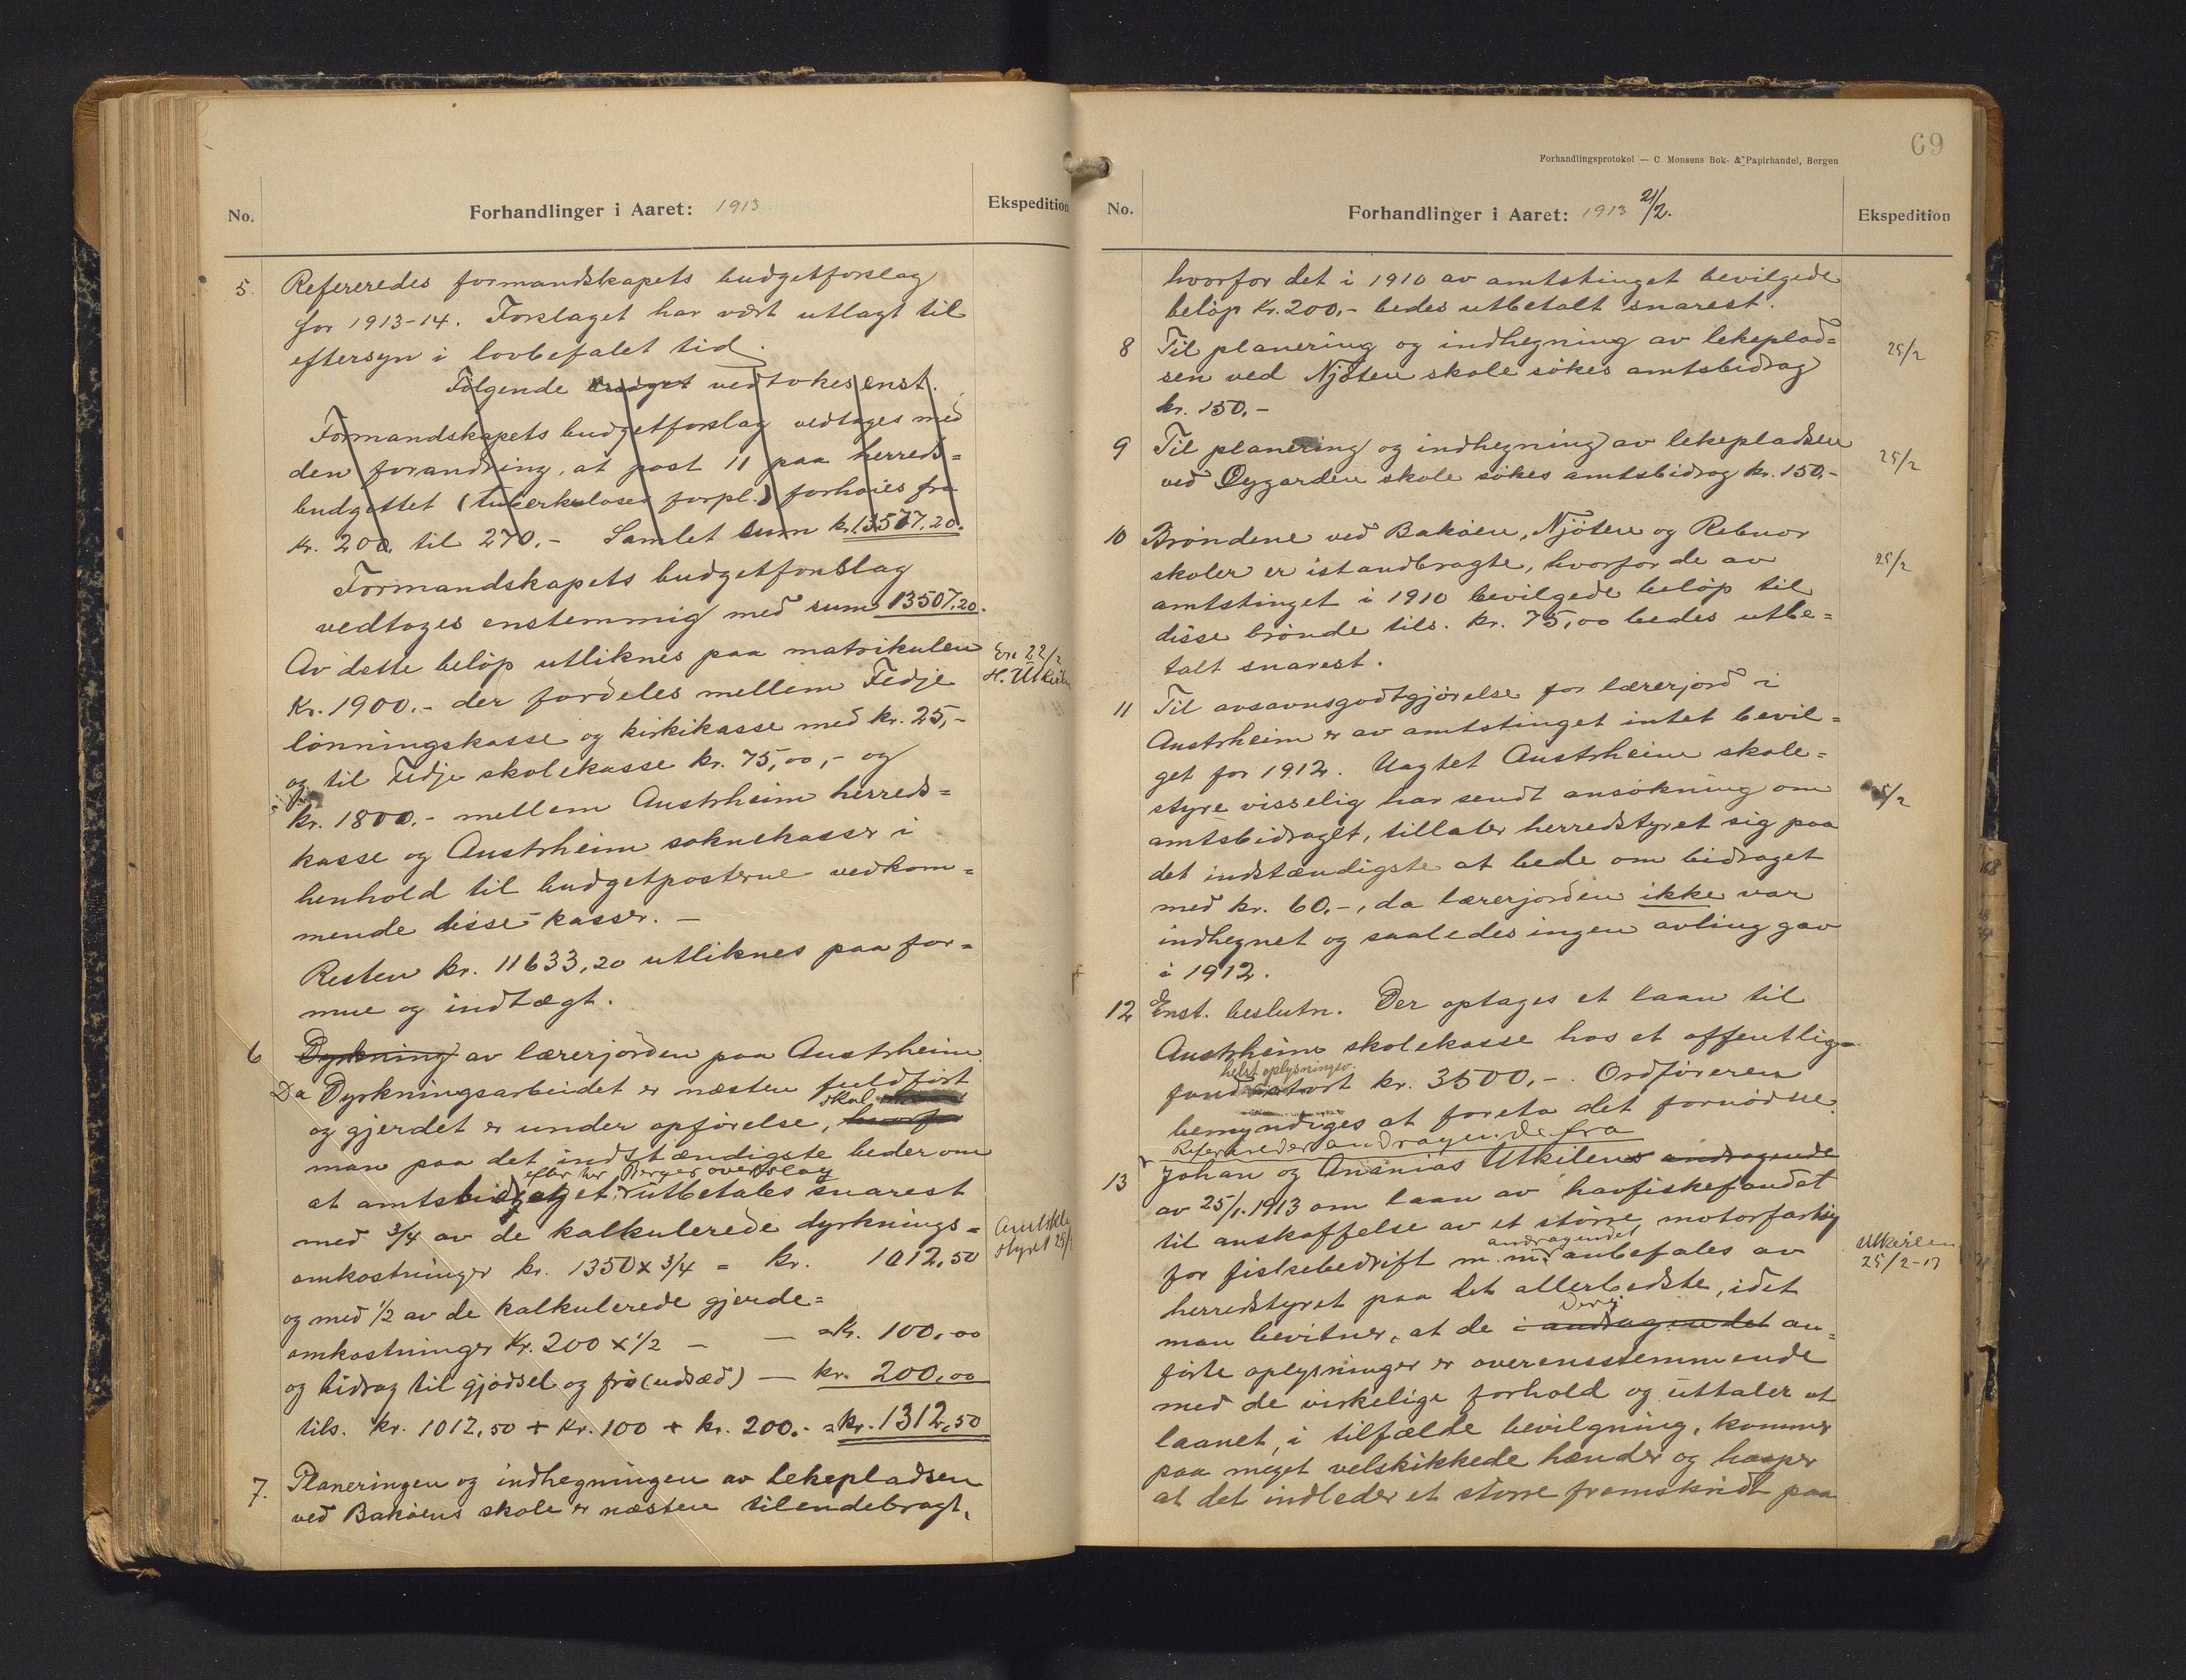 No.
Forhandlinger i Aaret: 1913
Ekspedition
5. Refereredes formandskapets budgetforslag
for 1913-14. Forslaget har vært utlagt til
eftersyn i lovbefalet tid.
Følgende budget vedtokes enst.
Formandskapets budgetforslag vedtages med
den forandring, at post 11 paa herreds=
budgettet (tuberkuloses forpl.) forhøies fra
Kr. 200, til 270.- Samlet sum kr. 13577.20.
Formandskapets budgetforslag
vedtages enstemmig med sum 13507.20.
Av dette beløp utliknes paa matrikulen
Kr. 1900.- der fordeles mellem Fedje
lønningskasse og kirkikasse med kr. 25,-
og til Fedje skolekasse kr. 75,00,- og
kr. 1800.- mellem Austrheim herreds=
kasse og Austrheim soknekasser i
henhold til budgetposterne vedkom=
mende disse kasser. -
Resten kr. 11633,20 utliknes paa for=
mue og indtægt.
Ex. 22/2
H. Utkilen
6 Dyrkning av lærerjorden paa Austrheim.
Da Dyrkningsarbeidet er næsten fuldført
og gjerdet er under opførelse, skal hvorfor
man paa det indstændigste beder om
efter hr Berges overslag
at amtsbidraget utbetales snarest
med 3/4 av de kalkulerede dyrknings=
omkostninger kr. 1350 x 3/4 = kr. 1012,50
og med 1/2 av de kalkulerede gjerde=
omkostninger Kr. 200 x 1/2 - — = kr. 100,00
og bidrag til gjødsel og frø (udsæd) — kr. 200,00
tils. kr. 1012,50 + kr. 100 + kr. 200.- = kr. 1312,50
7. Planeringen og indhegningen av lekepladsen
ved Bakøens skole er næsten tilendebragt,
69
Forhandlingsprotokol — C. Monsens Bok- & Papirhandel, Bergen
No.
Forhandlinger i Aaret: 1913 21/2.
Ekspedition
hvorfor det i 1910 av amtstinget bevilgede
beløp Kr. 200,- bedes utbetalt snarest.
8 Til planering og indhegning av lekeplad= 25/2
sen ved Njøten skole søkes amtsbidrag
kr. 150,-
9 Til planering og indhegning av lekepladsen 25/2
ved Oygarden skole søkes amtsbidrag kr. 150,-
10 Brøndene ved Bakøen, Njøten og Rebnor
skoler er istandbragte, hvorfor de av 25/2
amtstinget i 1910 bevilgede beløp til
disse brønde tils. kr. 75,00 bedes utbe=
talt snarest.
11 Til avsavnsgodtgjørelse for lærerjord i
Austrheim er av amtstinget intet bevil=
get for 1912. Uagtet Austrheim skole=
styre visselig har sendt ansøkning om
amtsbidraget, tillater herredstyret sig paa
det indstændigste at bede om bidraget
med kr. 60.-, da lærerjorden ikke var
indhegnet og saaledes ingen avling gav
i 1912.
12 Enst. beslutn. Der optages et laan til
Austrheim skolekasse hos et offentlig=
helst oplysningsv.
fond stort kr. 3500,-. Ordføreren
bemyndiges at foreta det fornødne.
Refereredes andragende fra
13 Johan og Ananias Utkilens andragende
av 25/1.1913 om laan av havfiskefondet
til anskaffelse av et større motorfartøy
andragendet
for fiskebedrift m.m. anbefales av
herredstyret paa det allerbedste, idet
deri
man bevitner, at de i andragendet an=
førte oplysninger er overensstemmende
med de virkelige forhold og uttaler at
laanet, i tilfælde bevilgning, kommer
paa meget velskikkede hænder og haaper
at det indleder et større fremskridt paa
Utkilen
25/2-13